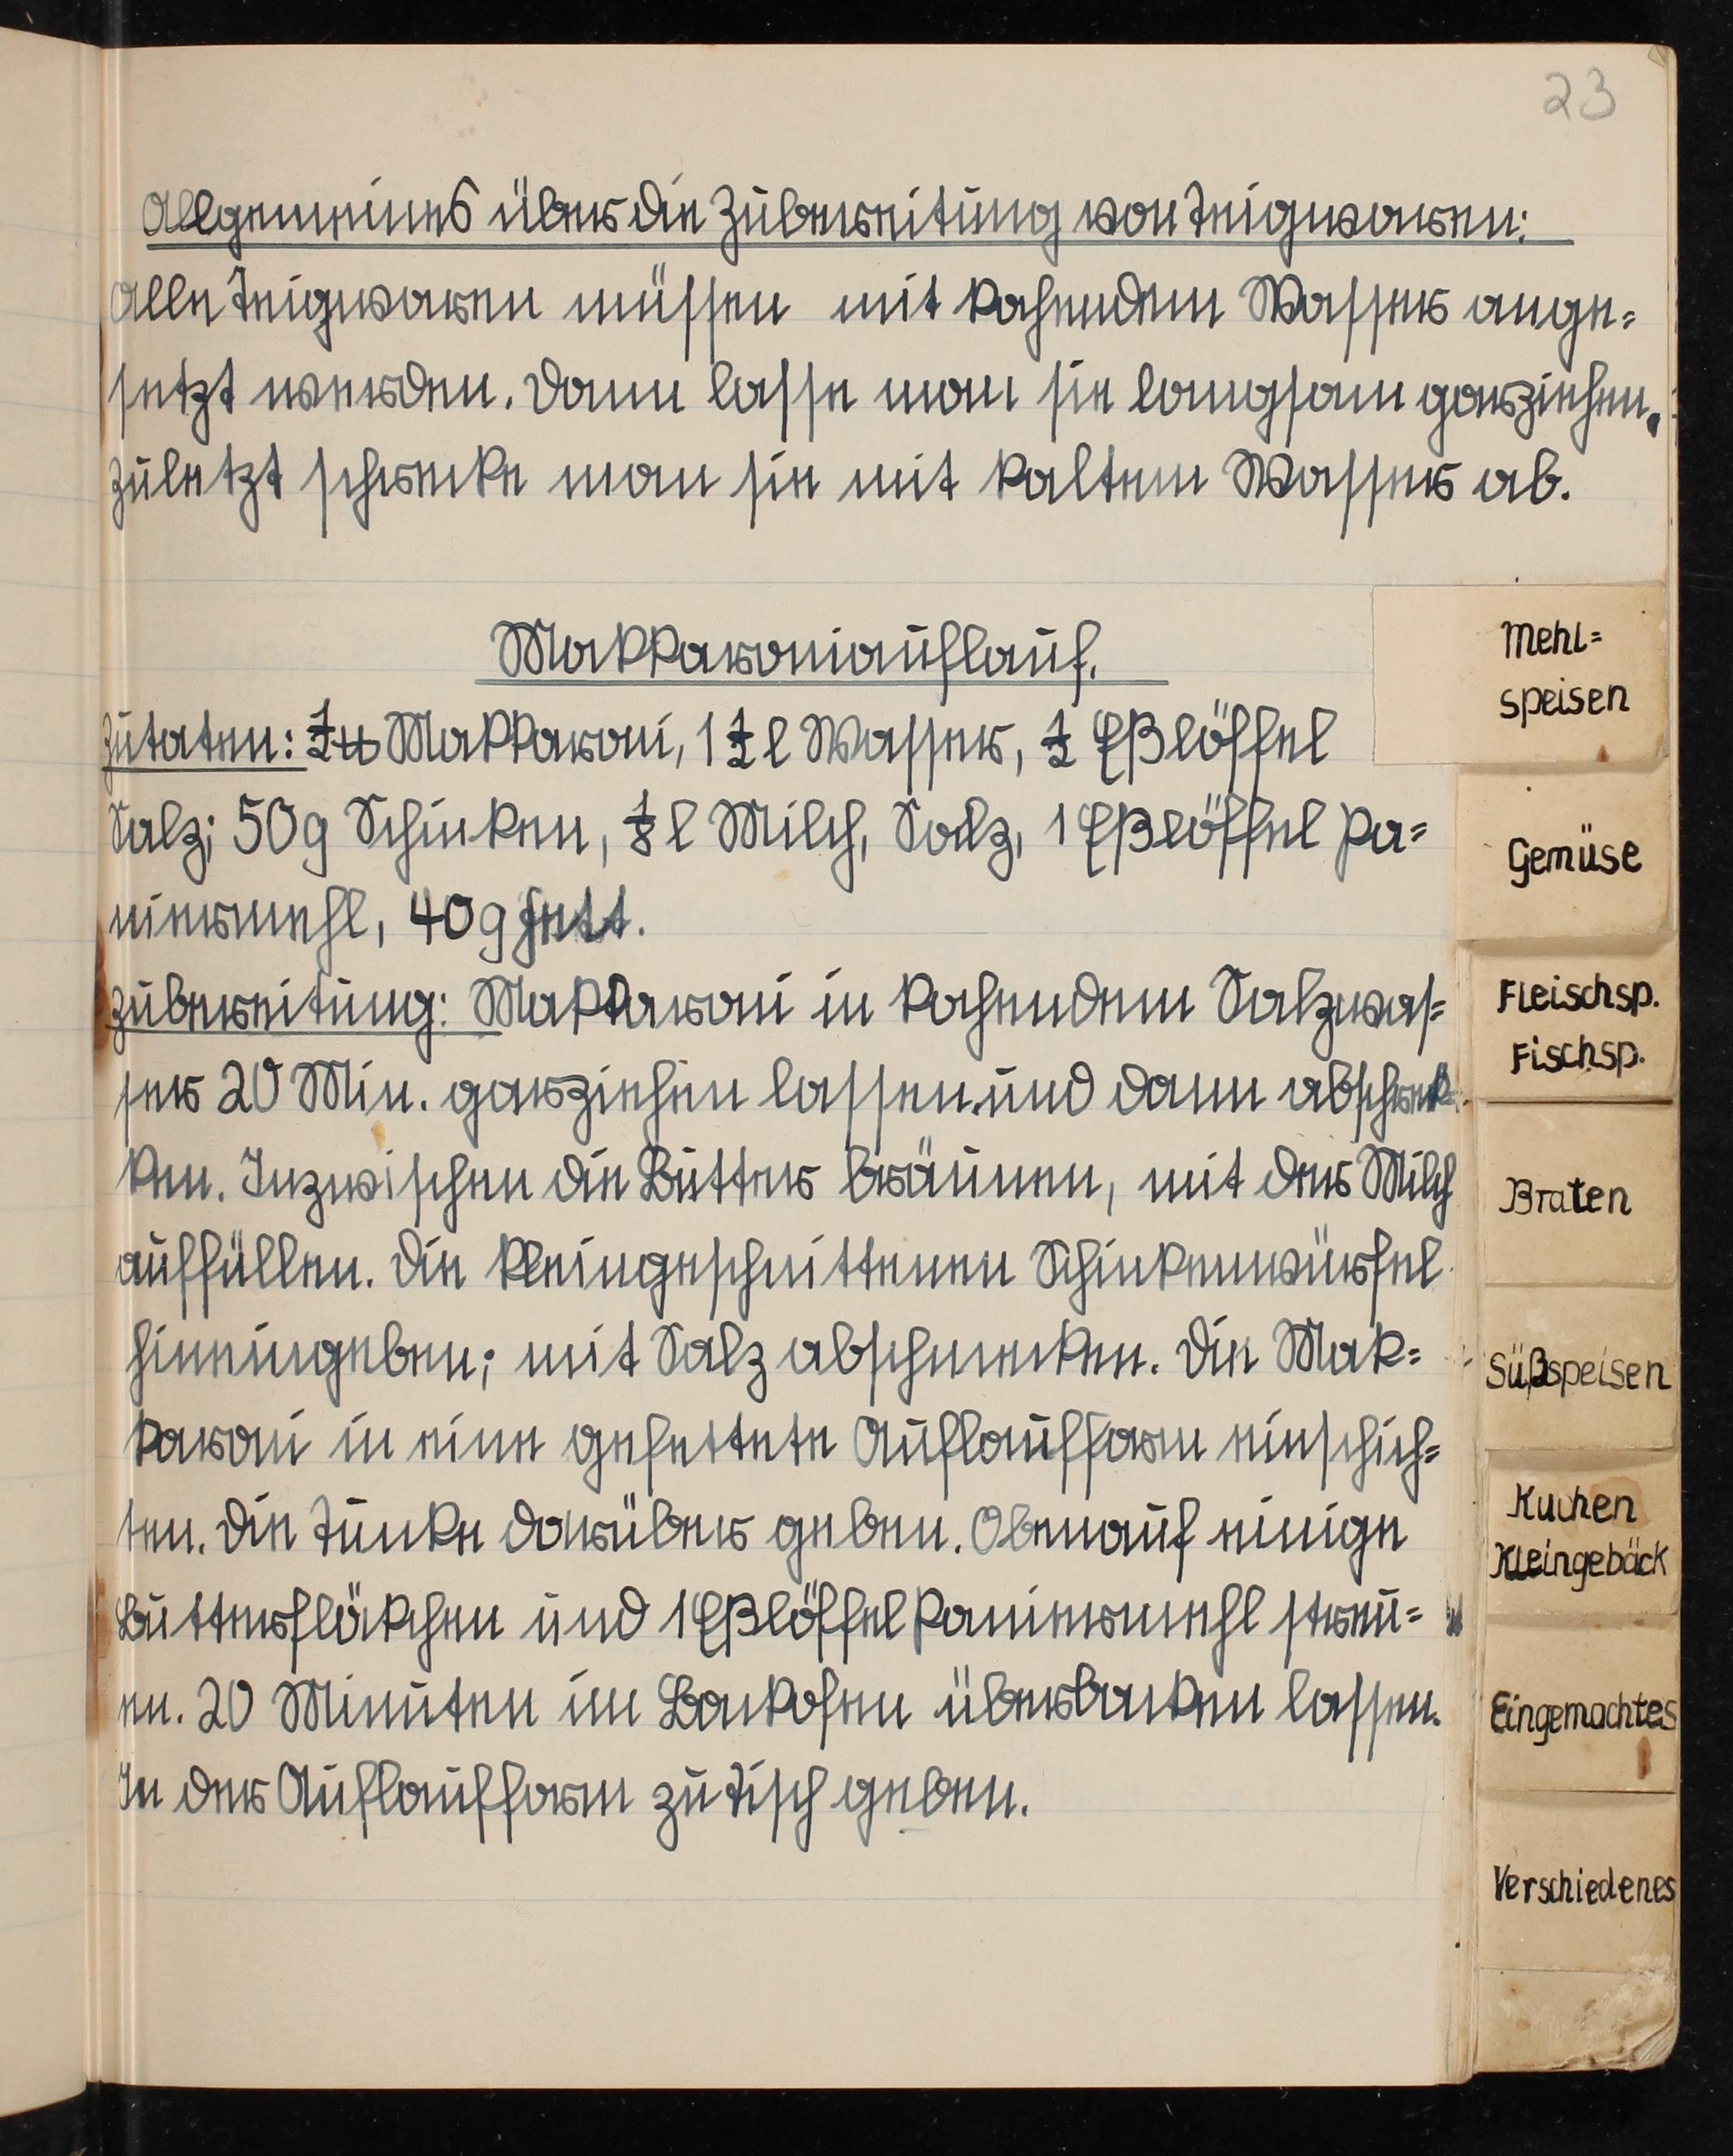 23
Allgemeines über die Zubereitung von Teigwaren:
Alle Teigwaren müssen mit kochendem Wasser ange=
setzt werden. Dann lasse man sie langsam garziehen.
Zuletzt schrecke man sie mit kaltem Wasser ab.
Makkaroniauflauf.
Zutaten: ½ ℔ Makkaroni, 1 ½ l Wasser, ½ Eßlöffel
Salz; 50g Schinken, ⅛ l Milch, Salz, 1 Eßlöffel Pa=
niermehl, 40g Fett.
Zubereitung: Makkaroni in kochendem Salzwas=
ser 20 Min. garziehen lassen und dann abschrek=
ken. Inzwischen die Butter bräunen, mit der Milch
auffüllen. Die kleingeschnittenen Schinkenwürfel
hineingeben; mit Salz abschmecken. Die Mak=
karoni in eine gefettete Auflaufform einschich=
ten. Die Tunke darüber geben. Obenauf einige
Butterflöckchen und 1 Eßlöffel Paniermehl streu=
en. 20 Minuten im Backofen überbacken lassen.
In der Auflaufform zu Tisch geben.
Mehl=
speisen
Gemüse
Fleischsp.
Fischsp.
Braten
Süßspeisen
Kuchen
Kleingebäck
Eingemachtes
Verschiedenes